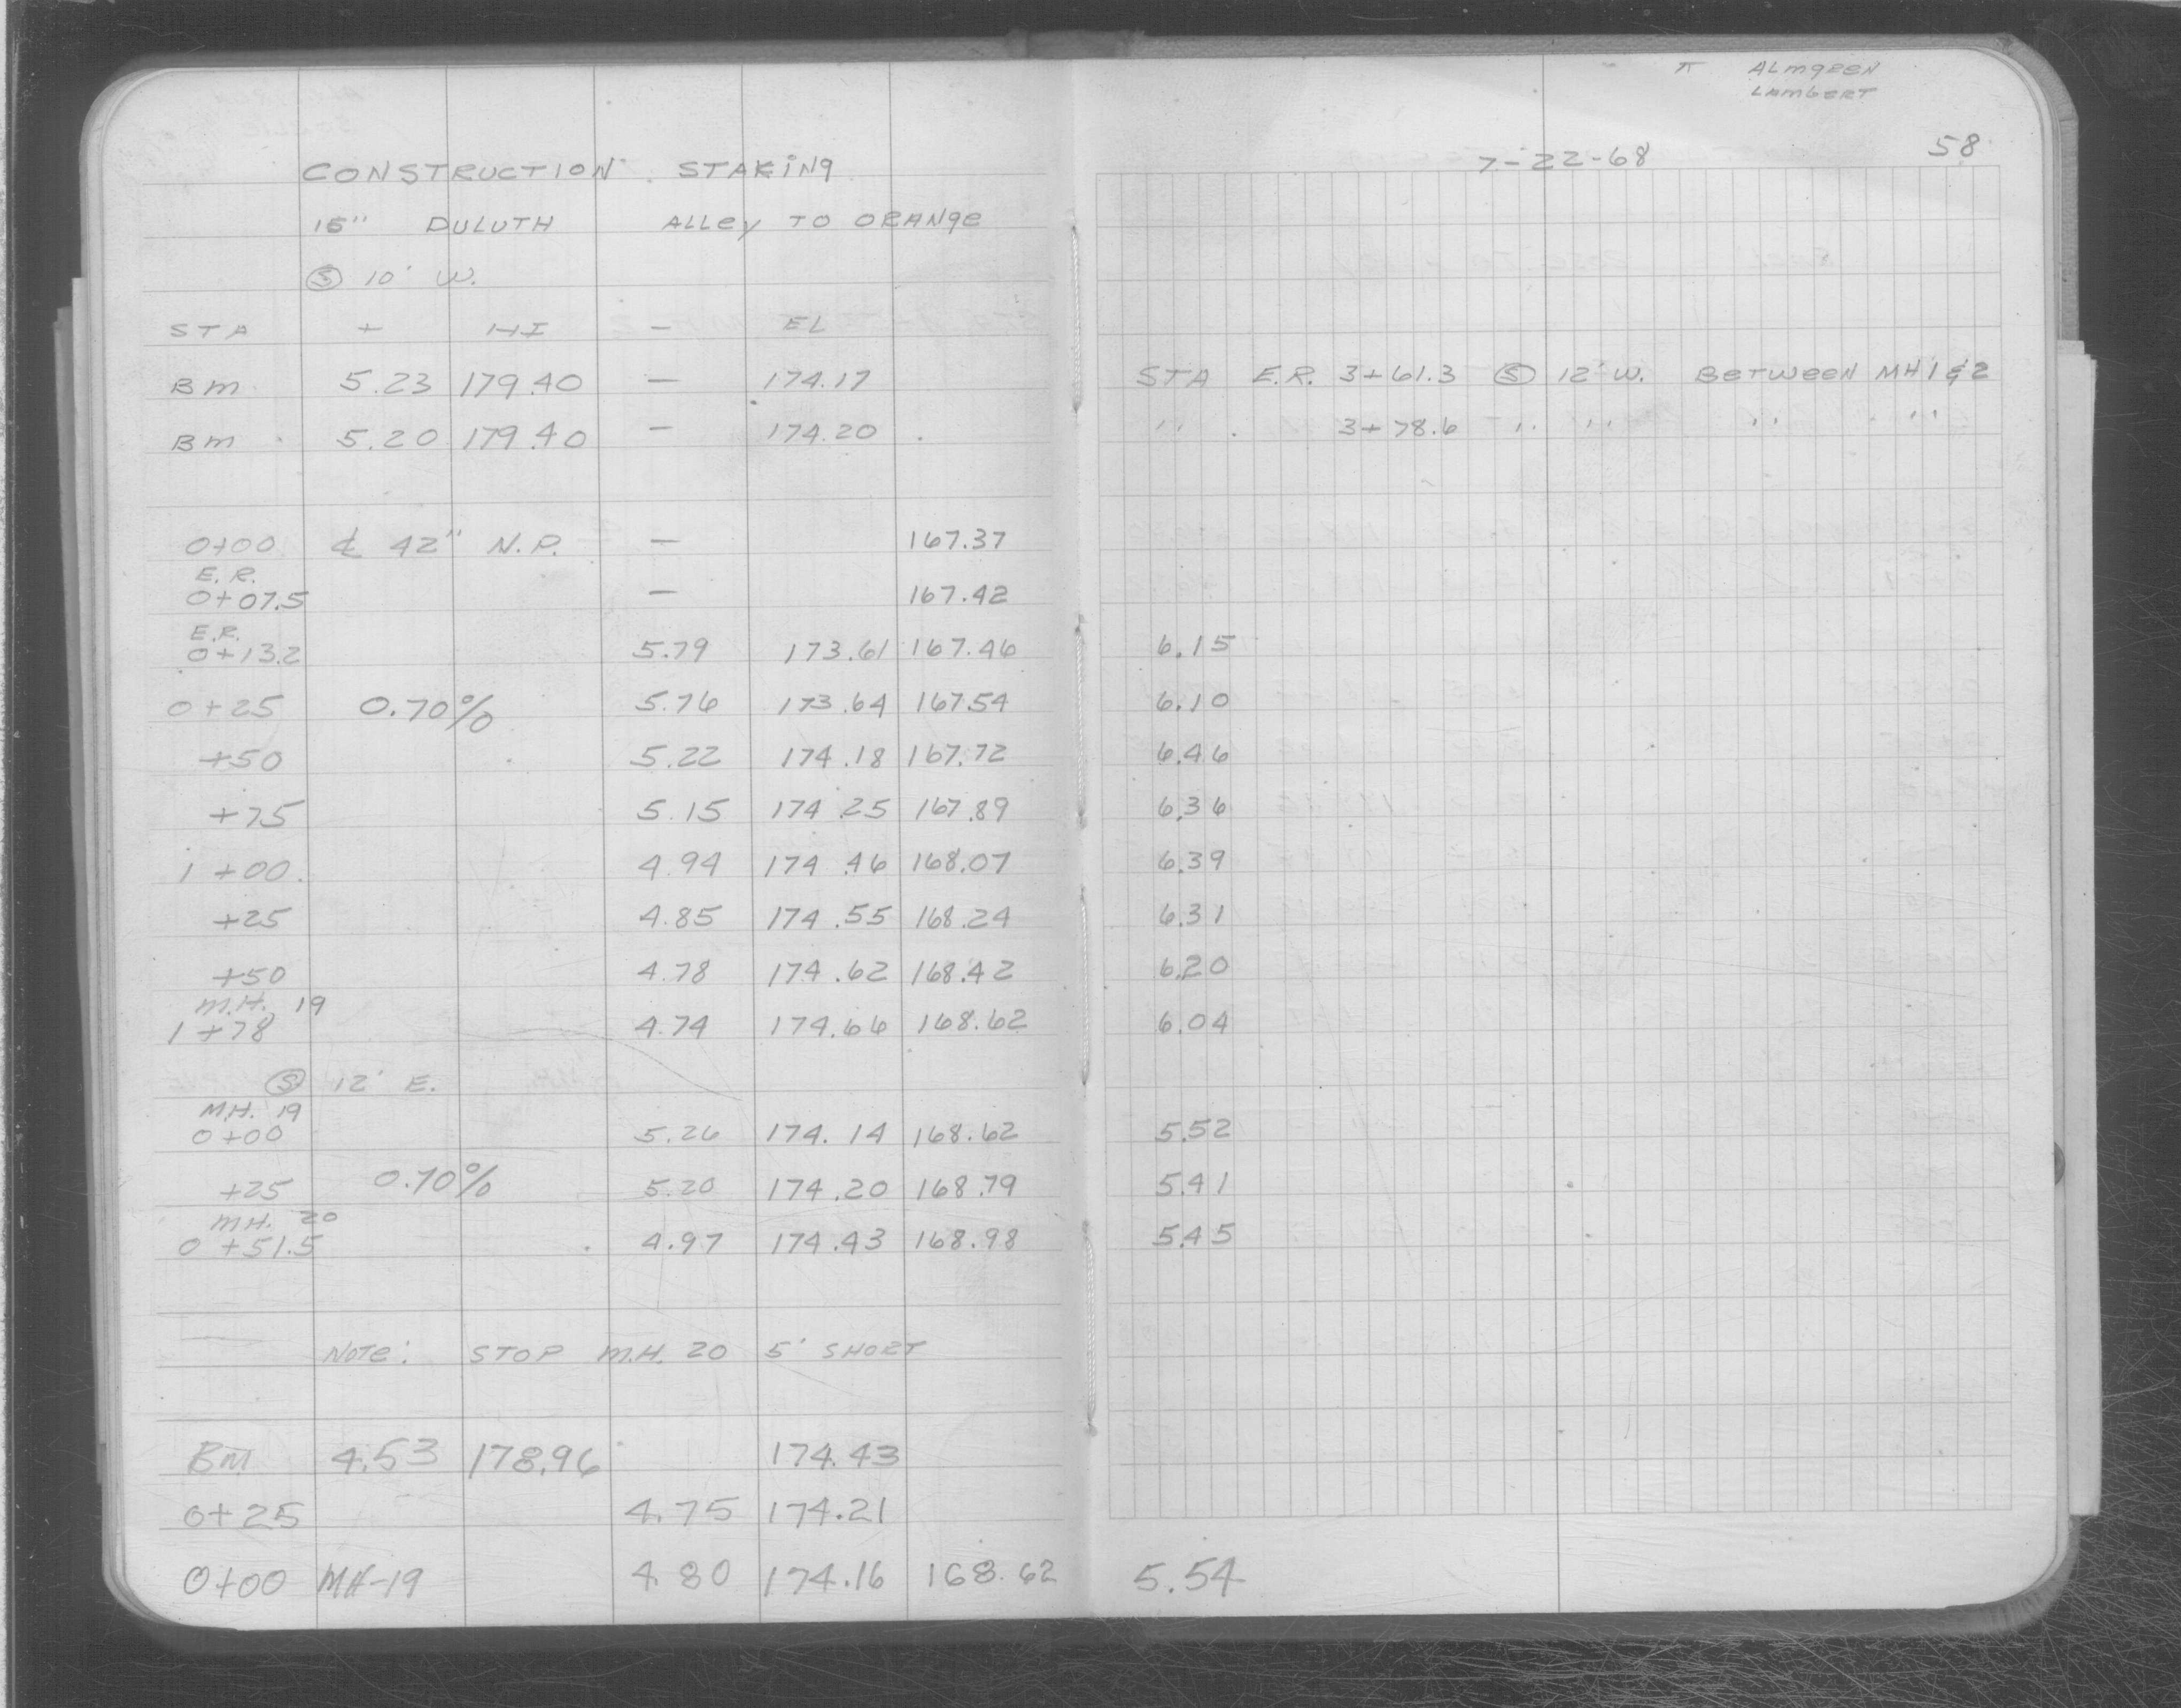 CONSTRUCTION STAKING
15" DULUTH ALLEY TO ORANGE
Ⓢ 10' W.
STA + HI — EL
BM 5.23 179.40 — 174.17
BM 5.20 179.40 — 174.20
0+00 ℄ 42" N.P. — 167.37
E.R.
0+07.5 — 167.42
E.R.
0+13.2 5.79 173.61 167.46
0+25 0.70% 5.76 173.64 167.54
+50 5.22 174.18 167.72
+75 5.15 174.25 167.89
1+00 4.94 174.46 168.07
+25 4.85 174.55 168.24
+50 4.78 174.62 168.42
M.H. 19
1+78 4.74 174.66 168.62
Ⓢ 12' E.
M.H. 19
0+00 5.26 174.14 168.62
+25 0.70% 5.20 174.20 168.79
M.H. 20
0+51.5 4.97 174.43 168.98
NOTE: STOP M.H. 20 5' SHORT
BM 4.53 178.96 174.43
0+25 4.75 174.21
0+00 MH-19 4.80 174.16 168.62
π ALMGREN
LAMBERT
7-22-68 58
STA E.R. 3+61.3 Ⓢ 12' W. BETWEEN MH 1 & 2
" 3+78.6 " " " "
6.15
6.10
6.46
6.36
6.39
6.31
6.20
6.04
5.52
5.41
5.45
5.54